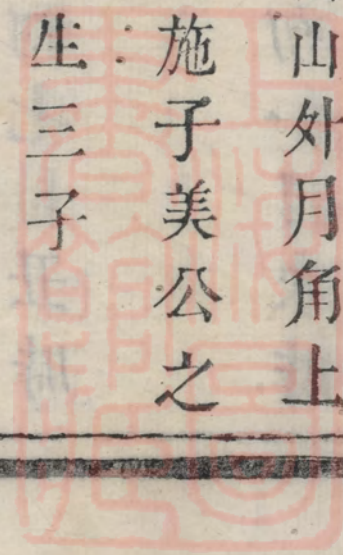 山外月角上
施子美公之
生三子